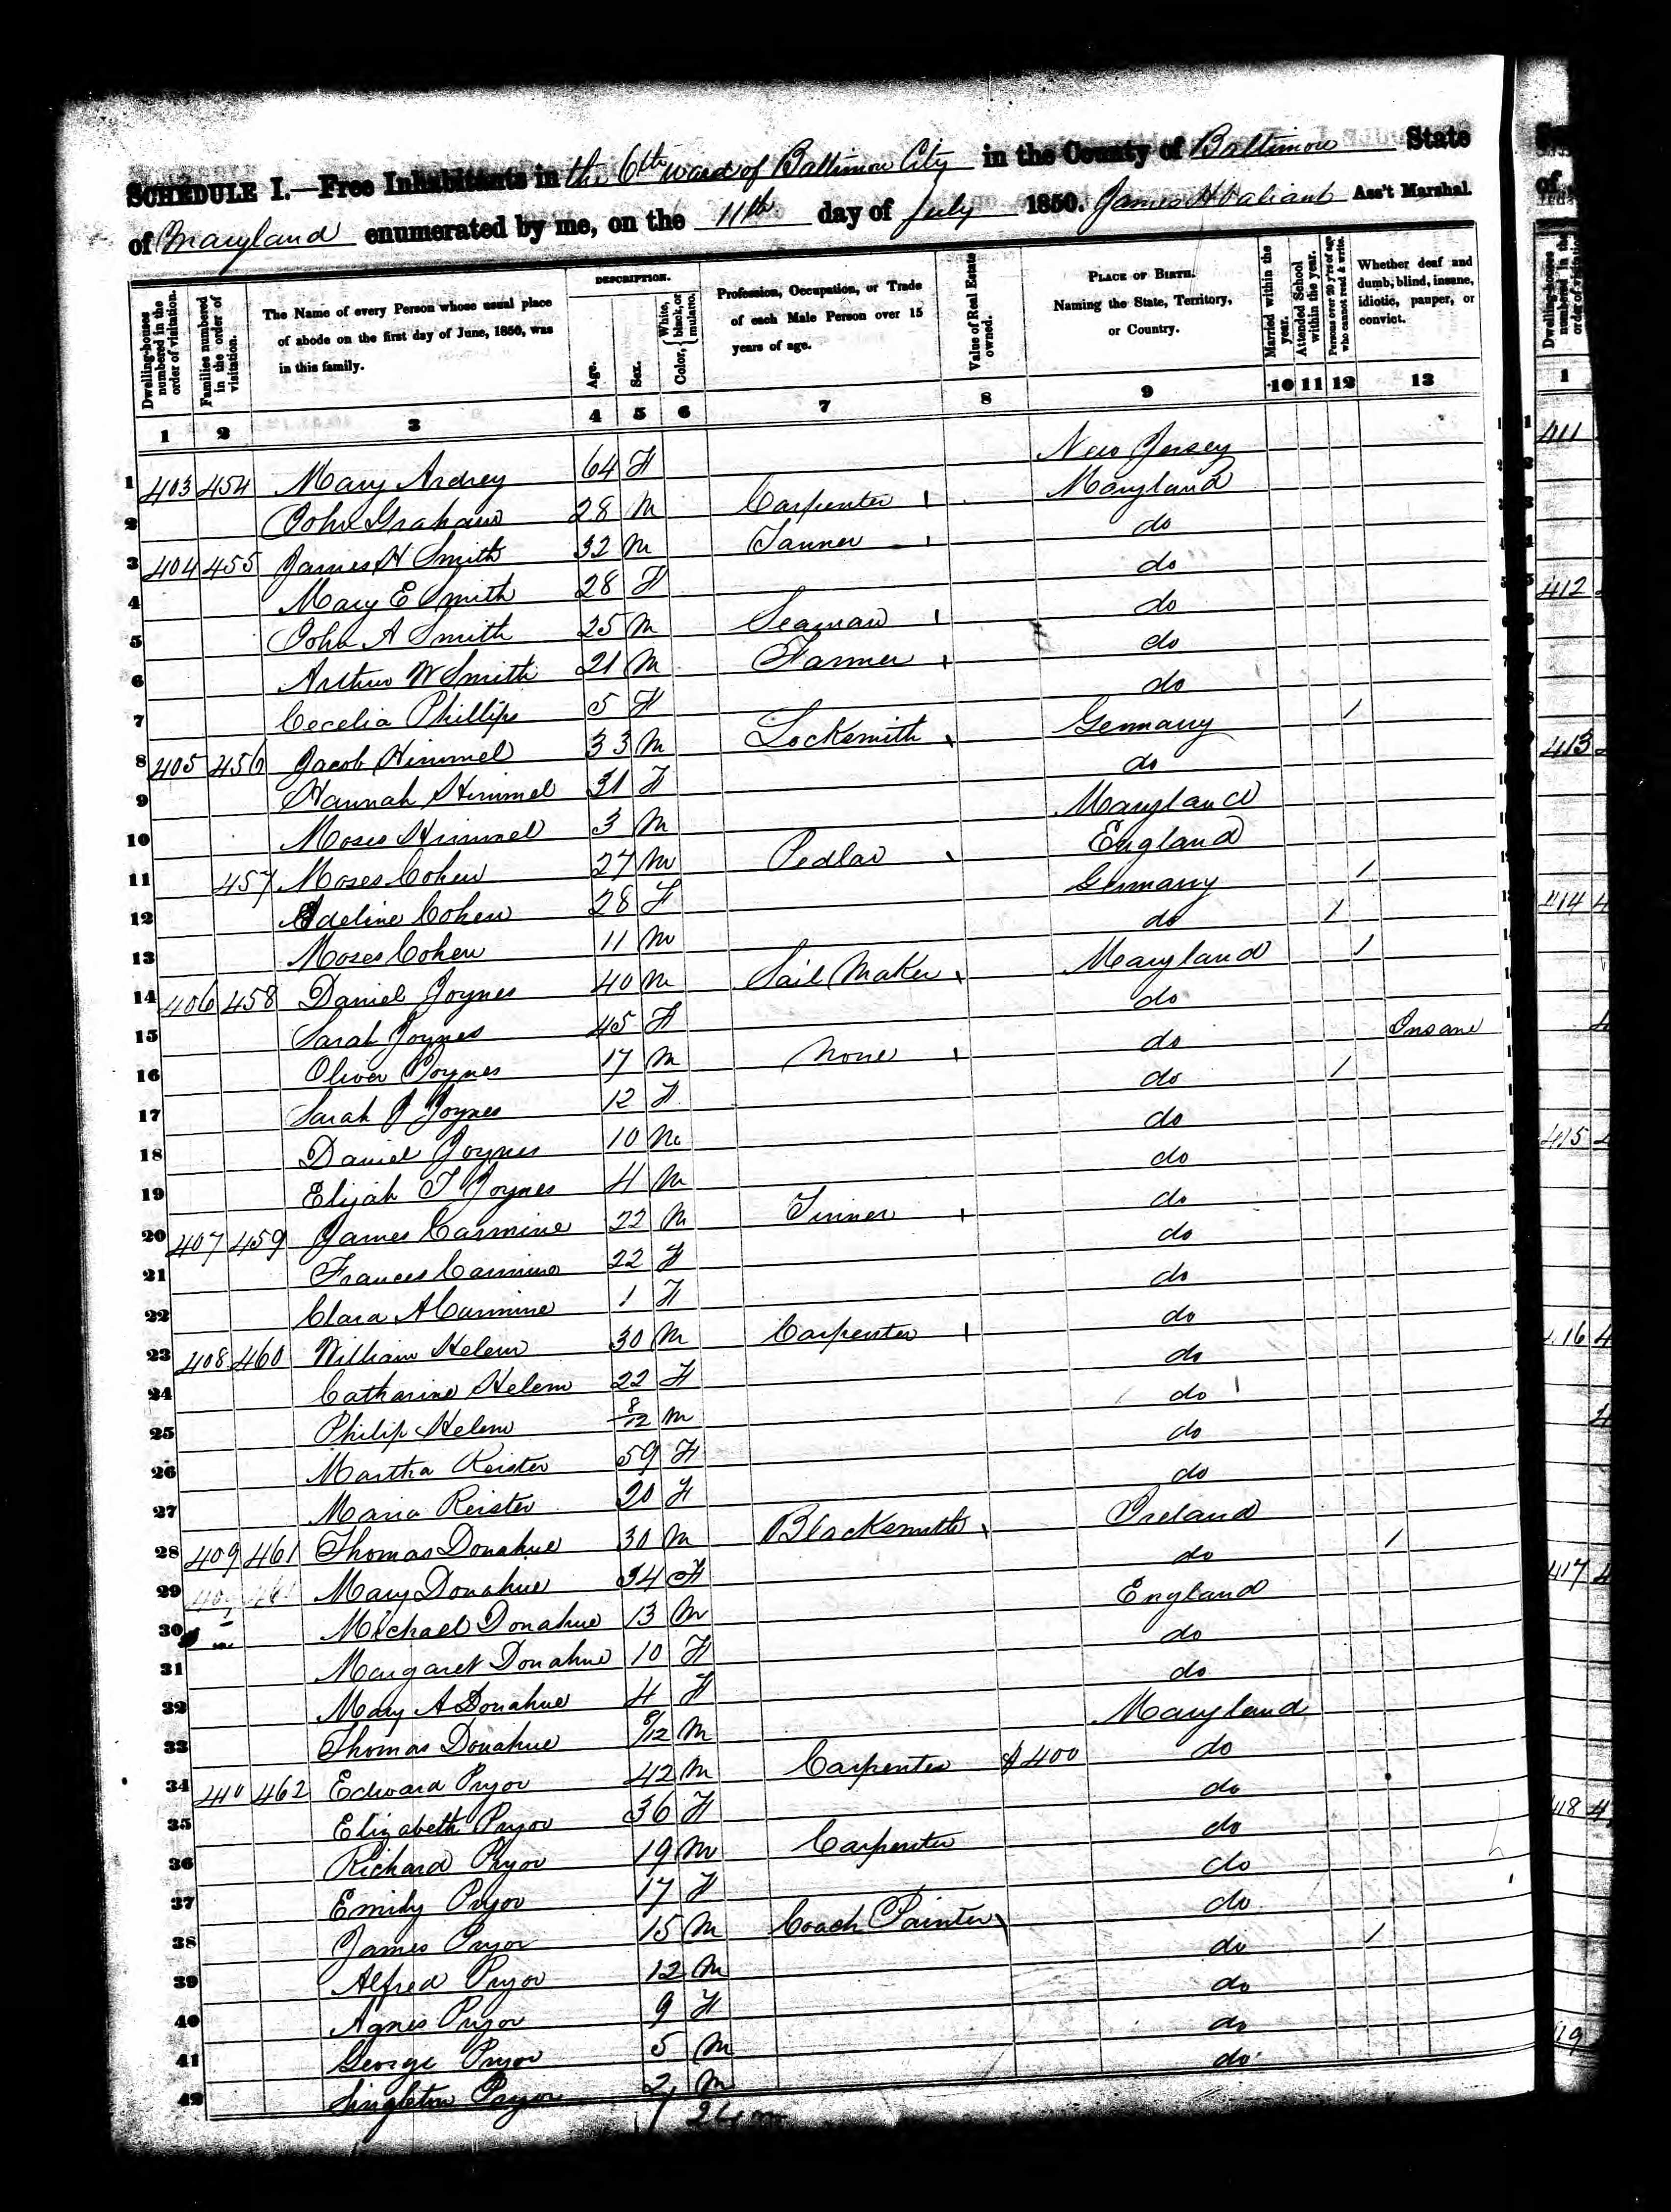 SCHEDULE I.—Free Inhabitants in the 6th ward of Baltimore City in the County of Baltimore State
of Maryland enumerated by me, on the 11th day of July 1850. James H Valiant Ass't Marshal.
Dwelling-houses numbered in the order of visitation.
Families numbered in the order of visitation.
The Name of every Person whose usual place of abode on the first day of June, 1850, was in this family.
DESCRIPTION.
Age.
Sex.
Color, { White, black, or mulatto.
Profession, Occupation, or Trade of each Male Person over 15 years of age.
Value of Real Estate owned.
PLACE OF BIRTH. Naming the State, Territory, or Country.
Married within the year.
Attended School within the year.
Persons over 20 y'rs of age who cannot read & write.
Whether deaf and dumb, blind, insane, idiotic, pauper, or convict.
1 2 3 4 5 6 7 8 9 10 11 12 13
1 403 454 Mary Ardrey 64 F New Jersey
2 John Graham 28 M Carpenter Maryland
3 404 455 James H Smith 32 M Tanner do
4 Mary E Smith 28 F do
5 John A Smith 25 M Seaman do
6 Arthur W Smith 21 M Farmer do
7 Cecelia Phillips 5 F do
8 405 456 Jacob Himmel 33 M Locksmith Germany /
9 Hannah Himmel 31 F do
10 Moses Himmel 3 M Maryland
11 457 Moses Cohen 27 M Pedlar England
12 Adeline Cohen 28 F Germany /
13 Moses Cohen 11 M do /
14 406 458 Daniel Joynes 40 M Sail Maker Maryland /
15 Sarah Joynes 45 F do
16 Oliver Joynes 17 M None do Insane
17 Sarah J Joynes 12 F do /
18 Daniel Joynes 10 M do
19 Elijah T Joynes 4 M do
20 407 459 James Carmine 22 M Tinner do
21 Frances Carmine 22 F do
22 Clara A Carmine 1 F do
23 408 460 William Helem 30 M Carpenter do
24 Catharine Helem 22 F do
25 Philip Helem 8/12 M do
26 Martha Reister 59 F do
27 Maria Reister 20 F do
28 409 461 Thomas Donahue 30 M Blacksmith Ireland
29 Mary Donahue 34 F do /
30 Michael Donahue 13 M England
31 Margaret Donahue 10 F do
32 Mary A Donahue 4 F do
33 Thomas Donahue /12 M Maryland
34 410 462 Edward Pryor 42 M Carpenter $400 do
35 Elizabeth Pryor 36 F do
36 Richard Pryor 19 M Carpenter do
37 Emily Pryor 17 F do
38 James Pryor 15 M Coach Painter do
39 Alfred Pryor 12 M do /
40 Agnes Pryor 9 F do
41 George Pryor 5 M do
42 Singleton Pryor 2 M do
1
411
412
413
414
415
416
417
418